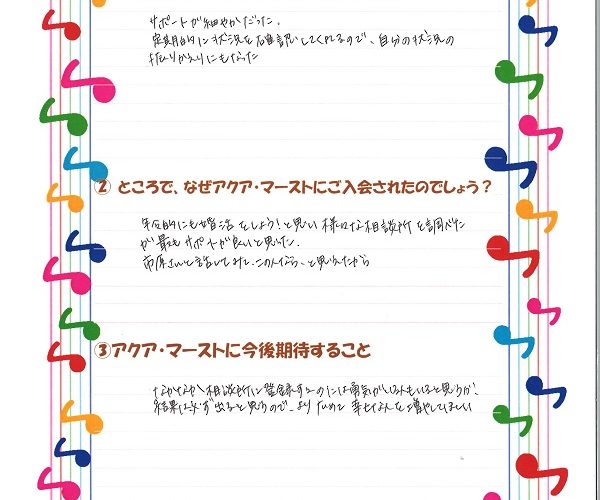 サポートが細やかだった。
定期的に状況を確認してくれるので、自分の状況の
振りかえりにもなった
② ところで、なぜアクア・マーストにご入会されたのでしょう？
年令的にも婚活をしよう！と思い 様々な相談所を調べた
が最もサポートが良いと思った。
市原さんと話してみて、この人なら、と思えたから
③ アクア・マーストに今後期待すること
なかなか相談所に登録するのには勇気がいる人もいると思うが、
結果は必ず出ると思うので、よりための 幸せな人を増やしてほしい